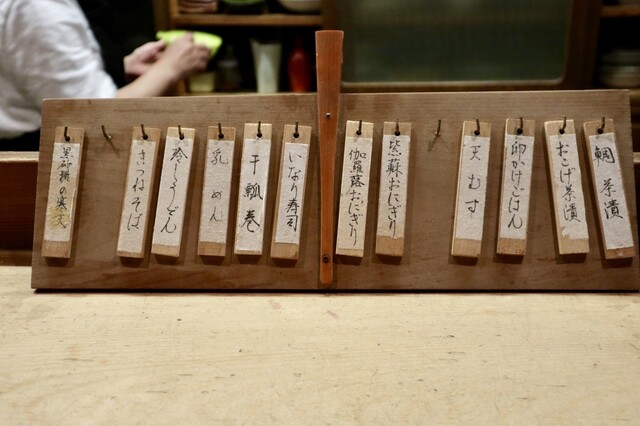 鯛茶漬
おこげ茶漬
卵かけごはん
天むす
紫蘇おにぎり
伽羅蕗おにぎり
いなり寿司
干瓢巻
乳めん
冷しうどん
きつねそば
黒砂糖の寒天